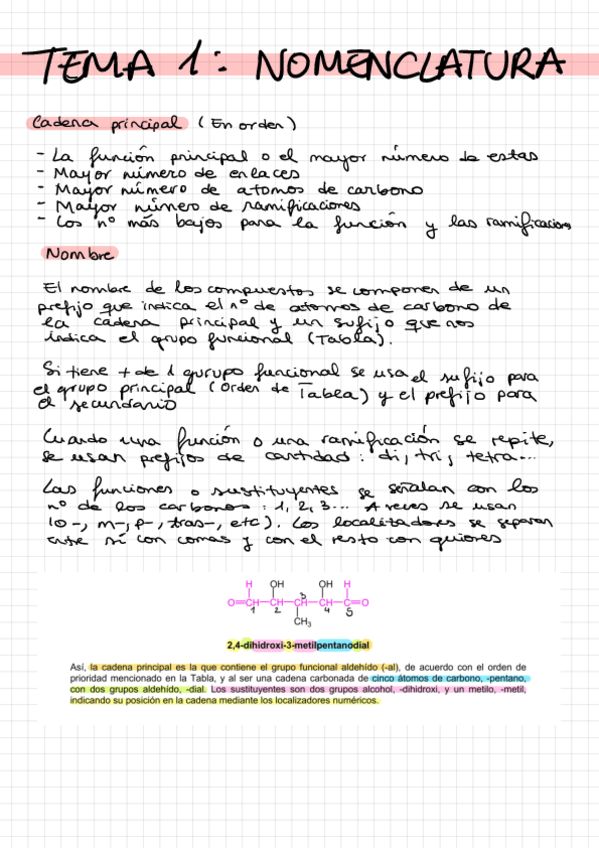 TEMA 1: NOMENCLATURA
Cadena principal (En orden)
- La función principal o el mayor número de estas
- Mayor número de enlaces
- Mayor número de atomos de carbono
- Mayor número de ramificaciones
- Los nº más bajos para la función y las ramificaciones
Nombre
El nombre de los compuestos se componen de un
prefijo que indica el nº de atomos de carbono de
la cadena principal y un sufijo que nos
indica el grupo funcional (Tabla).
Si tiene + de 1 gurupo funcional se usa el sufijo para
el grupo principal (Orden de Tabla) y el prefijo para
el secundario
Cuando una función o una ramificación se repite,
se usan prefijos de cantidad: di, tri, tetra...
Las funciones o sustituyentes se señalan con los
nº de los carbonos: 1, 2, 3... A veces se usan
(o-, m-, p-, trans-, etc). Los localizadores se separan
entre sí con comas y con el resto con guiones
H OH OH H
O=CH-CH-CH-CH-C=O
1 2 3 4 5
CH₃
2,4-dihidroxi-3-metilpentanodial
Así, la cadena principal es la que contiene el grupo funcional aldehído (-al), de acuerdo con el orden de
prioridad mencionado en la Tabla, y al ser una cadena carbonada de cinco átomos de carbono, -pentano,
con dos grupos aldehído, -dial. Los sustituyentes son dos grupos alcohol, -dihidroxi, y un metilo, -metil,
indicando su posición en la cadena mediante los localizadores numéricos.